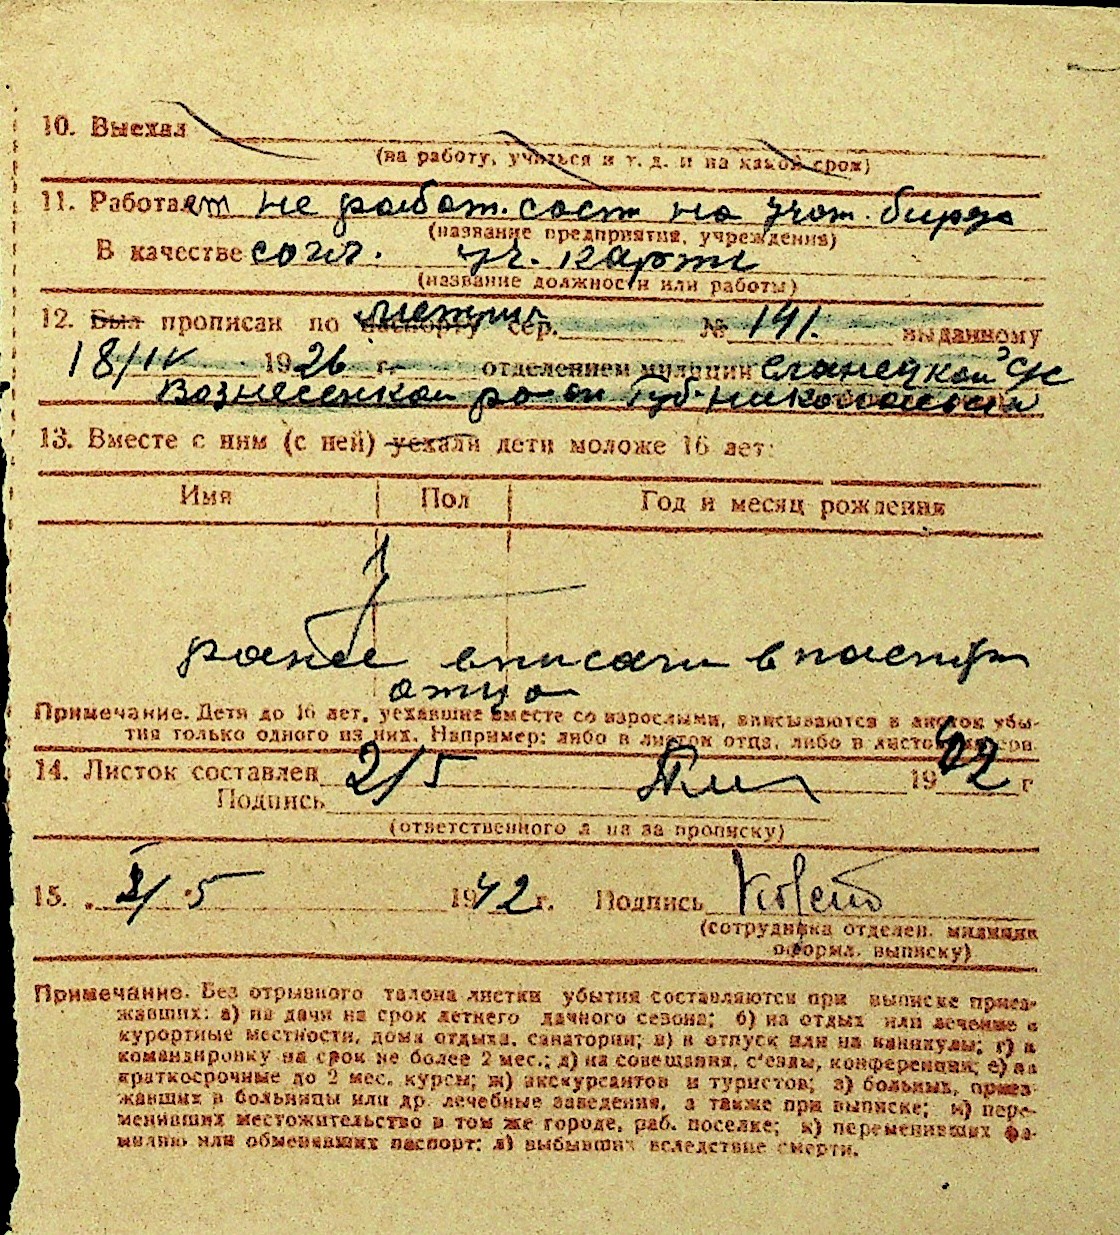 10. Выехал
(на работу, учиться и т. д. и на какой срок)
11. Работает не работ. сост на учот. биржи
(название предприятия, учреждения)
В качестве согл. уч. карти
(название должности или работы)
12. Был прописан по паспорту метрии сер. № 141. выданному
18/IV 1926 г. отделением милиции Еланецкой с/с
Вознесенкой ро-он Губ. Николаевской
13. Вместе с ним (с ней) уехали дети моложе 16 лет:
Имя Пол Год и месяц рождения
ранее вписани в паспорт
отца
Примечание. Дети до 16 лет, уехавшие вместе со взрослыми, вписываются в листок убы-
тия только одного из них. Например: либо в листок отца, либо в листок матери.
14. Листок составлен 2/5 1942 г
Подпись
(ответственного лица за прописку)
15. 2/5 1942 г. Подпись
(сотрудника отделен. милиции
оформл. выписку)
Примечание. Без отрывного талона листки убытия составляются при выписке приез-
жавших: а) на дачи на срок летнего дачного сезона; б) на отдых или лечение в
курортные местности, дома отдыха, санатории; в) в отпуск или на каникулы; г) в
командировку на срок не более 2 мес.; д) на совещания, с'езды, конференции; е) на
краткосрочные до 2 мес. курсы; ж) экскурсантов и туристов; з) больных, приез-
жавших в больницы или др. лечебные заведения, а также при выписке; и) пере-
менивших местожительство в том же городе, раб. поселке; к) переменивших фа-
милию или обменявших паспорт; л) выбывших вследствие смерти.